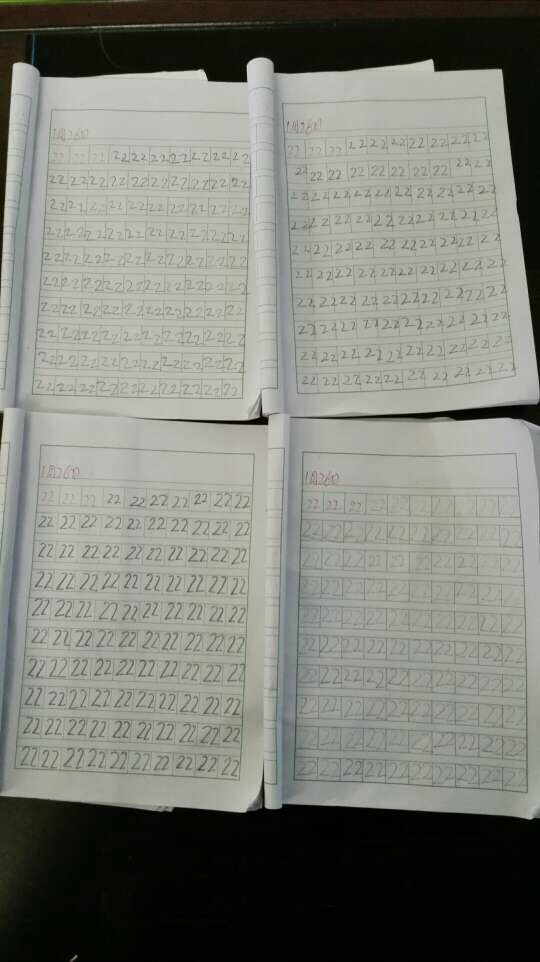 1月26日
22 22 22 22 22 22 22 22 22 22
22 22 22 22 22 22 22 22 22 22
22 22 22 22 22 22 22 22 22 22
22 22 22 22 22 22 22 22 22 22
22 22 22 22 22 22 22 22 22 22
22 22 22 22 22 22 22 22 22 22
22 22 22 22 22 22 22 22 22 22
22 22 22 22 22 22 22 22 22 22
22 22 22 22 22 22 22 22 22 22
22 22 22 22 22 22 22 22 22 22
1月26日
22 22 22 22 22 22 22 22 22 22
22 22 22 22 22 22 22 22 22
22 22 22 22 22 22 22 22 22 22
22 22 22 22 22 22 22 22 22 22
22 22 22 22 22 22 22 22 22 22
22 22 22 22 22 22 22 22 22 22
22 22 22 22 22 22 22 22 22 22
22 22 22 22 22 22 22 22 22 22
22 22 22 22 22 22 22 22 22 22
22 22 22 22 22 22 22 22 22 22
1月26日
22 22 22 22 22 22 22 22 22 22
22 22 22 22 22 22 22 22 22 22
22 22 22 22 22 22 22 22 22 22
22 22 22 22 22 22 22 22 22 22
22 22 22 22 22 22 22 22 22 22
22 22 22 22 22 22 22 22 22 22
22 22 22 22 22 22 22 22 22 22
22 22 22 22 22 22 22 22 22 22
22 22 22 22 22 22 22 22 22 22
22 22 22 22 22 22 22 22 22 22
1月26日
22 22 22 22 22 22 22 22 22 22
22 22 22 22 22 22 22 22 22 22
22 22 22 22 22 22 22 22 22 22
22 22 22 22 22 22 22 22 22 22
22 22 22 22 22 22 22 22 22 22
22 22 22 22 22 22 22 22 22 22
22 22 22 22 22 22 22 22 22 22
22 22 22 22 22 22 22 22 22 22
22 22 22 22 22 22 22 22 22 22
22 22 22 22 22 22 22 22 22 22